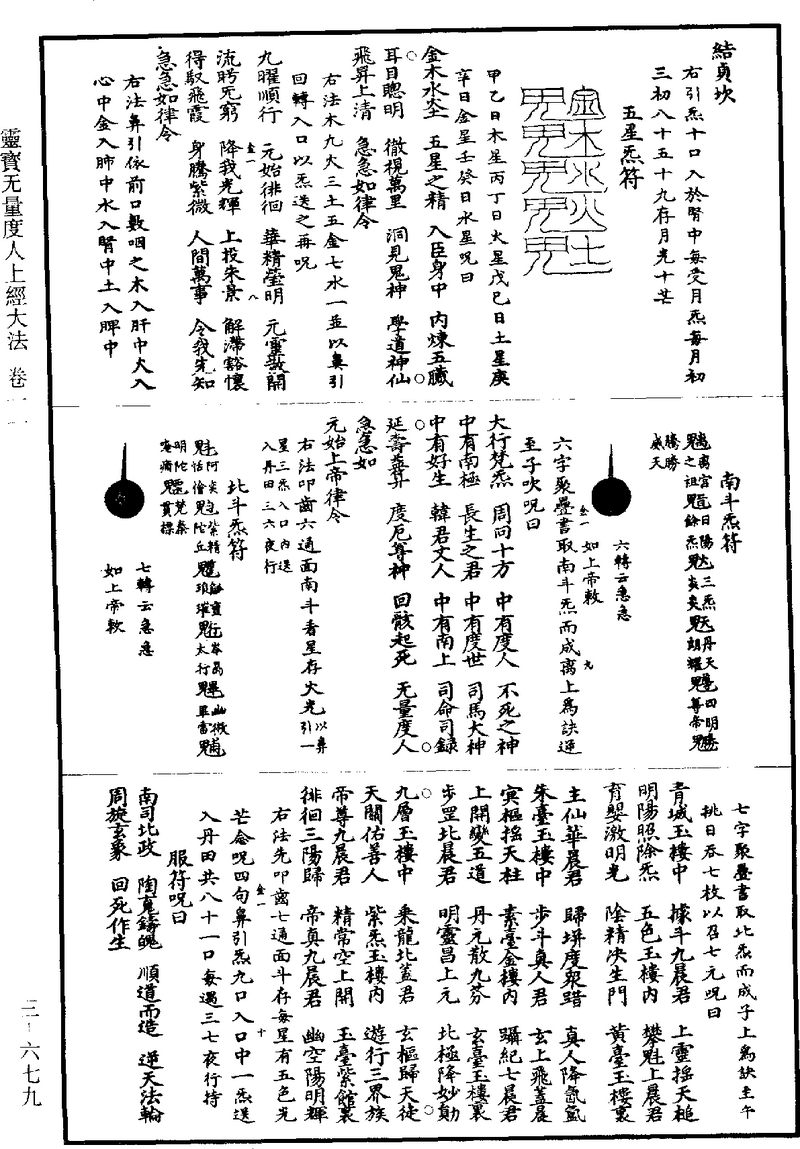 靈寶无量度人上經大法 卷一一
三-六七九
結貞坎
右引炁十口入於腎中每受月炁每月初
三初八十五十九存月光十芒
五星炁符
甲乙日木星丙丁日火星戊己日土星庚
辛日金星壬癸日水星呪曰
金木水火土 五星之精 入臣身中 內煉五臟
耳目聰明 徹視萬里 洞見鬼神 學道神仙
飛昇上清 急急如律令
右法木九火三土五金七水一並以鼻引
回轉入口以炁送之再呪
九曜順行 元始徘徊 華精瑩明 元靈散開
流盻无窮 降我光輝 上投朱景 解滯豁懷
得馭飛霞 身騰紫微 人間萬事 令我先知
急急如律令
右法鼻引依前口數咽之木入肝中火入
心中金入肺中水入腎中土入脾中
南斗炁符
騰勝
威天
六轉云急急
如上帝敕
六字聚疊書取南斗炁而成离上爲訣逆
至子吹呪曰
大行梵炁 周回十方 中有度人 不死之神
中有南極 長生之君 中有度世 司馬大神
中有好生 韓君丈人 中有南上 司命司錄
延壽益筭 度厄尊神 回骸起死 无量度人
急急如
元始上帝律令
右法叩齒六通面南斗看星存火光以鼻引一
星三炁入口內送
入丹田三六夜行
北斗炁符
七轉云急急
如上帝敕
七字聚疊書取北炁而成子上爲訣至午
挑日吞七枚以召七元呪曰
青城玉樓中 據斗九晨君 上靈搖天槌
明陽照除炁 五色玉樓內 攀魁上晨君
育嬰激明光 陰精決生門 黃臺玉樓裏
主仙華晨君 歸拼度衆踖 真人降氤氳
朱臺玉樓中 步斗真人君 玄上飛蓋晨
寞樞搖天柱 素臺金樓內 躡紀七晨君
上開變五道 丹元散九芬 玄臺玉樓裏
步罡北晨君 明靈昌上元 北極降妙勛
九層玉樓中 乘龍北蓋君 玄樞歸天徒
天關佑善人 紫炁玉樓內 遊行三界族
帝尊九晨君 精常空上開 玉臺紫館裏
徘徊三陽歸 帝真九晨君 幽空陽明輝
右法先叩齒七通面斗存每星有五色光
芒念呪四句鼻引炁九口入口中一炁送
入丹田共八十一口每遇三七夜行持
服符呪曰
南司北政 陶䰟鑄魄 順道而造 逆天法輪
周旋玄象 回死作生